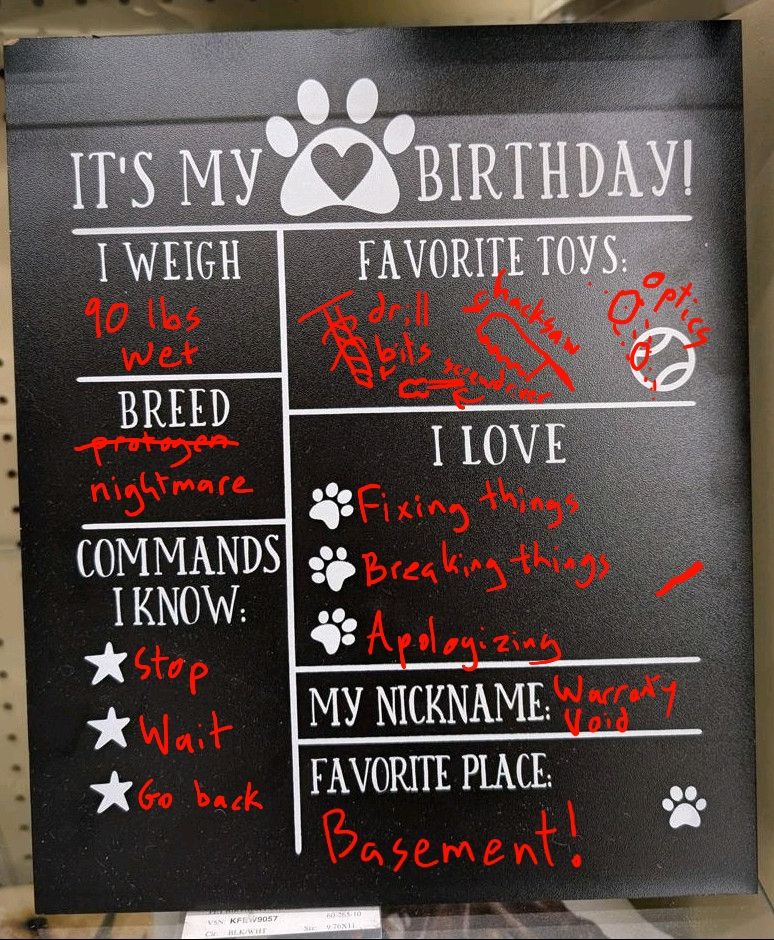 IT'S MY BIRTHDAY!
I WEIGH
90 lbs
wet
BREED
protogen
nightmare
COMMANDS
I KNOW:
Stop
Wait
Go back
FAVORITE TOYS:
drill
bits
screwdriver
chacksaw
optics
I LOVE
Fixing things
Breaking things
Apologizing
MY NICKNAME: Warranty
Void
FAVORITE PLACE:
Basement!
VSN: KFEW9057
60-265-10
Clr: BLK/WHT
Size: 9.76X11